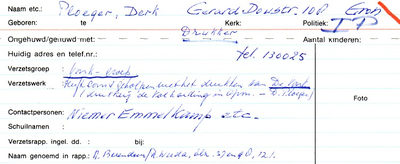 Naam etc.: Ploeger, Derk Gerard Doustr. 100 Gron
Geboren: te Kerk: Politiek: IP
Drukker
Ongehuwd/gehuwd met: Aantal kinderen:
Huidig adres en telef.nr.: tel. 130025
Verzetsgroep : Vonk-groep
Verzetswerk : Heeft vond geholpen met het drukken van De Vonk
(drukkerij de Volharding in Gron. - D. Ploeger)
Foto
Contactpersonen: Niemer Emmelkamp etc.
Schuilnaam :
Verzetsrapp. ingel. dd : bij:
Naam genoemd in rapp.: R. Berendsen/R. Weeda, blz. 12.